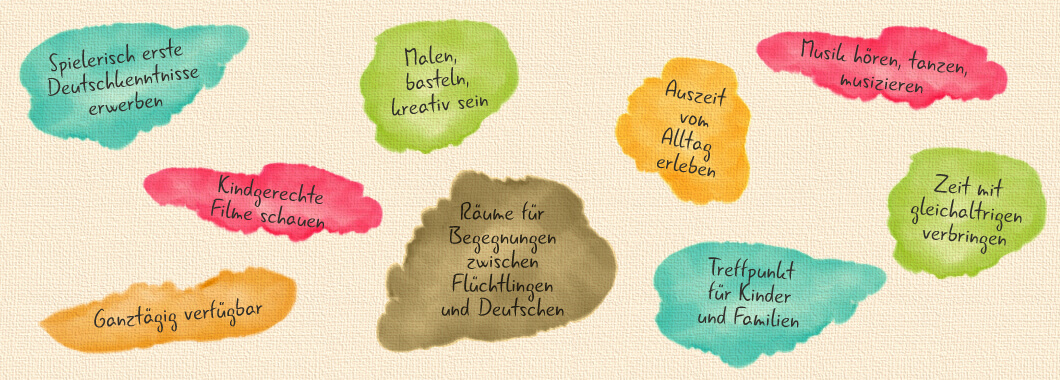 Spielerisch erste
Deutschkenntnisse
erwerben
Malen,
basteln,
kreativ sein
Auszeit
vom
Alltag
erleben
Musik hören, tanzen,
musizieren
Kindgerechte
Filme schauen
Räume für
Begegnungen
zwischen
Flüchtlingen
und Deutschen
Zeit mit
gleichaltrigen
verbringen
Ganztägig verfügbar
Treffpunkt
für Kinder
und Familien